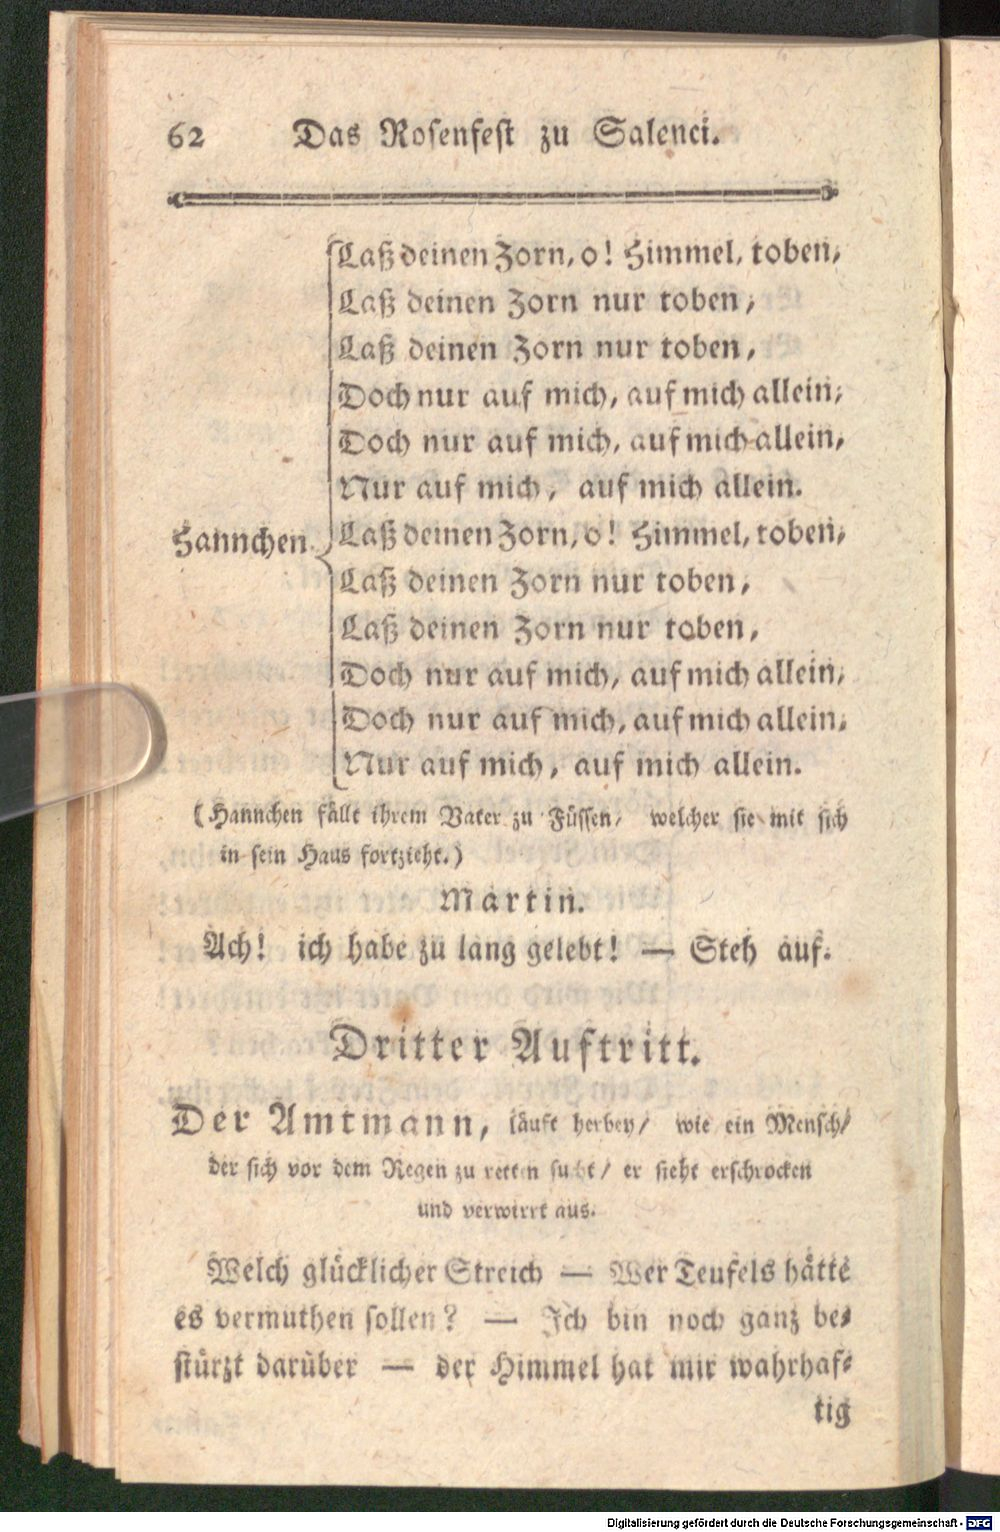 62 Das Rosenfest zu Salenci.
Laß deinen Zorn, o! Himmel, toben,
Laß deinen Zorn nur toben,
Laß deinen Zorn nur toben,
Doch nur auf mich, auf mich allein,
Doch nur auf mich, auf mich allein,
Nur auf mich, auf mich allein.
Hannchen.
Laß deinen Zorn, o! Himmel, toben,
Laß deinen Zorn nur toben,
Laß deinen Zorn nur toben,
Doch nur auf mich, auf mich allein,
Doch nur auf mich, auf mich allein,
Nur auf mich, auf mich allein.
(Hannchen fällt ihrem Vater zu Füssen, welcher sie mit sich
in sein Haus fortzieht.)
Martin.
Ach! ich habe zu lang gelebt! — Steh auf.
Dritter Auftritt.
Der Amtmann, läuft herbey/ wie ein Mensch/
der sich vor dem Regen zu retten sucht/ er sieht erschrocken
und verwirrt aus.
Welch glücklicher Streich — Wer Teufels hätte
es vermuthen sollen? — Ich bin noch ganz be-
stürzt darüber — der Himmel hat mir wahrhaf-
tig
Digitalisierung gefördert durch die Deutsche Forschungsgemeinschaft - DFG